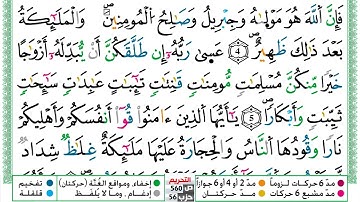 فَإِنَّ ٱللَّهَ هُوَ مَوْلَىٰهُ وَجِبْرِيلُ وَصَٰلِحُ ٱلْمُؤْمِنِينَۖ وَٱلْمَلَٰٓئِكَةُ
بَعْدَ ذَٰلِكَ ظَهِيرٌ ٤ عَسَىٰ رَبُّهُۥٓ إِن طَلَّقَكُنَّ أَن يُبْدِلَهُۥٓ أَزْوَٰجًا
خَيْرًا مِّنكُنَّ مُسْلِمَٰتٍ مُّؤْمِنَٰتٍ قَٰنِتَٰتٍ تَٰٓئِبَٰتٍ عَٰبِدَٰتٍ سَٰٓئِحَٰتٍ
ثَيِّبَٰتٍ وَأَبْكَارًا ٥ يَٰٓأَيُّهَا ٱلَّذِينَ ءَامَنُوا۟ قُوٓا۟ أَنفُسَكُمْ وَأَهْلِيكُمْ
نَارًا وَقُودُهَا ٱلنَّاسُ وَٱلْحِجَارَةُ عَلَيْهَا مَلَٰٓئِكَةٌ غِلَاظٌ شِدَادٌ
مدّ 6 حركات لزوماً مدّ 2 أو 4 أو 6 جوازاً التحريم إخفاء، ومواقع الغُنَّة (حركتان) تفخيم
مدّ مشبع 6 حركات مدّ حركتان ص 560 حزب 56 إدغام، وما لا يُلفظ قلقلة